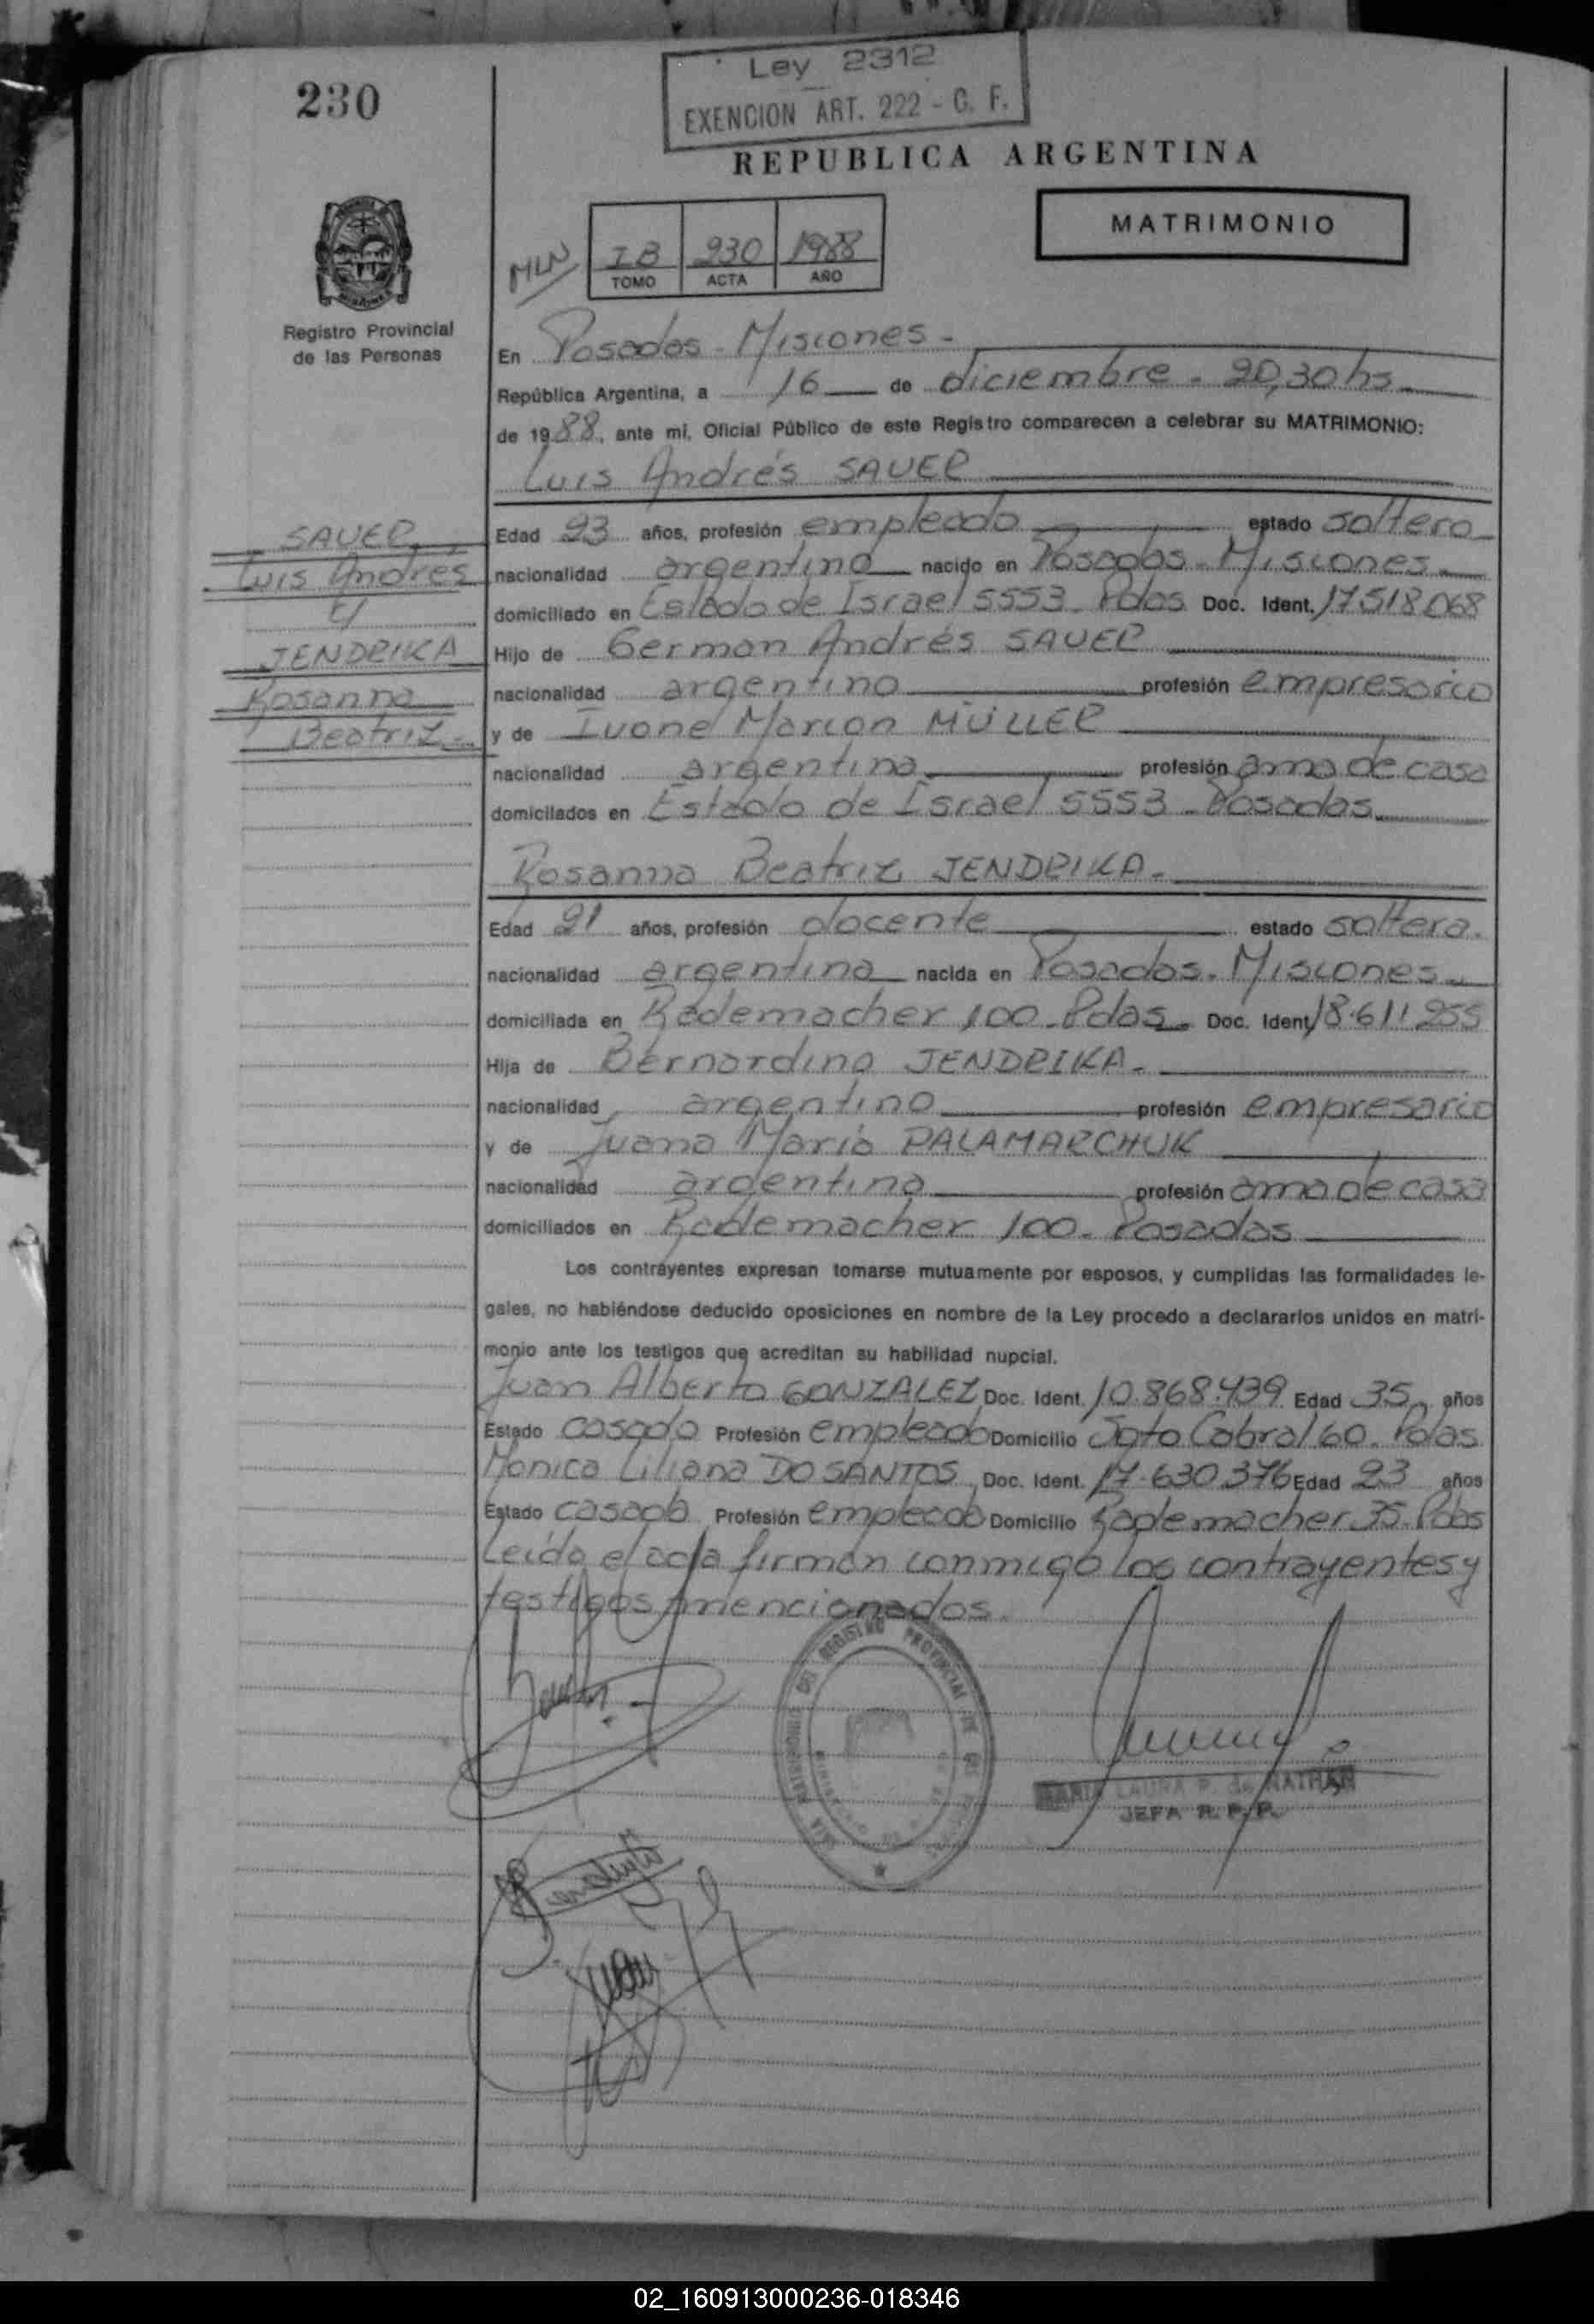 230
Ley 2312
EXENCION ART. 222 - C. F.
REPUBLICA ARGENTINA
MATRIMONIO
MLN
IB 230 1988
TOMO ACTA AÑO
Registro Provincial
de las Personas
SAUER
Luis Andrés
c/
JENDRIKA
Rosanna
Beatriz.-
En Posadas - Misiones -
República Argentina, a 16 de diciembre - 20,30 hs.
de 1988, ante mí, Oficial Público de este Registro comparecen a celebrar su MATRIMONIO:
Luis Andrés SAUER
Edad 23 años, profesión empleado estado soltero
nacionalidad argentina nacido en Posadas - Misiones
domiciliado en Estado de Israel 5553 - Pdas Doc. Ident. 17518068
Hijo de German Andrés SAUER
nacionalidad argentino profesión empresario
y de Ivone Marion MÜLLER
nacionalidad argentina profesión ama de casa
domicilados en Estado de Israel 5553 - Posadas
Rosanna Beatriz JENDRIKA -
Edad 21 años, profesión docente estado soltera.
nacionalidad argentina nacida en Posadas - Misiones
domiciliada en Rademacher 100 - Pdas - Doc. Ident. 18.611.255
Hija de Bernardino JENDRIKA -
nacionalidad argentino profesión empresario
y de Juana María PALAMARCHUK
nacionalidad argentina profesión ama de casa
domiciliados en Rademacher 100 - Posadas
Los contrayentes expresan tomarse mutuamente por esposos, y cumplidas las formalidades le-
gales, no habiéndose deducido oposiciones en nombre de la Ley procedo a declararlos unidos en matri-
monio ante los testigos que acreditan su habilidad nupcial.
Juan Alberto GONZALEZ Doc. Ident. 10.868.439 Edad 35 años
Estado casado Profesión empleado Domicilio Sgto Cabral 60 - Pdas
Monica Liliana DO SANTOS Doc. Ident. 17.630.376 Edad 23 años
Estado casada Profesión empleada Domicilio Rademacher 35 - Pdas
Leído el acta firman conmigo los contrayentes y
testigos mencionados.
REGISTRO PROVINCIAL DE
MARIA LAURA P. de NATHAN
JEFA R. P. P.
02_160913000236-018346